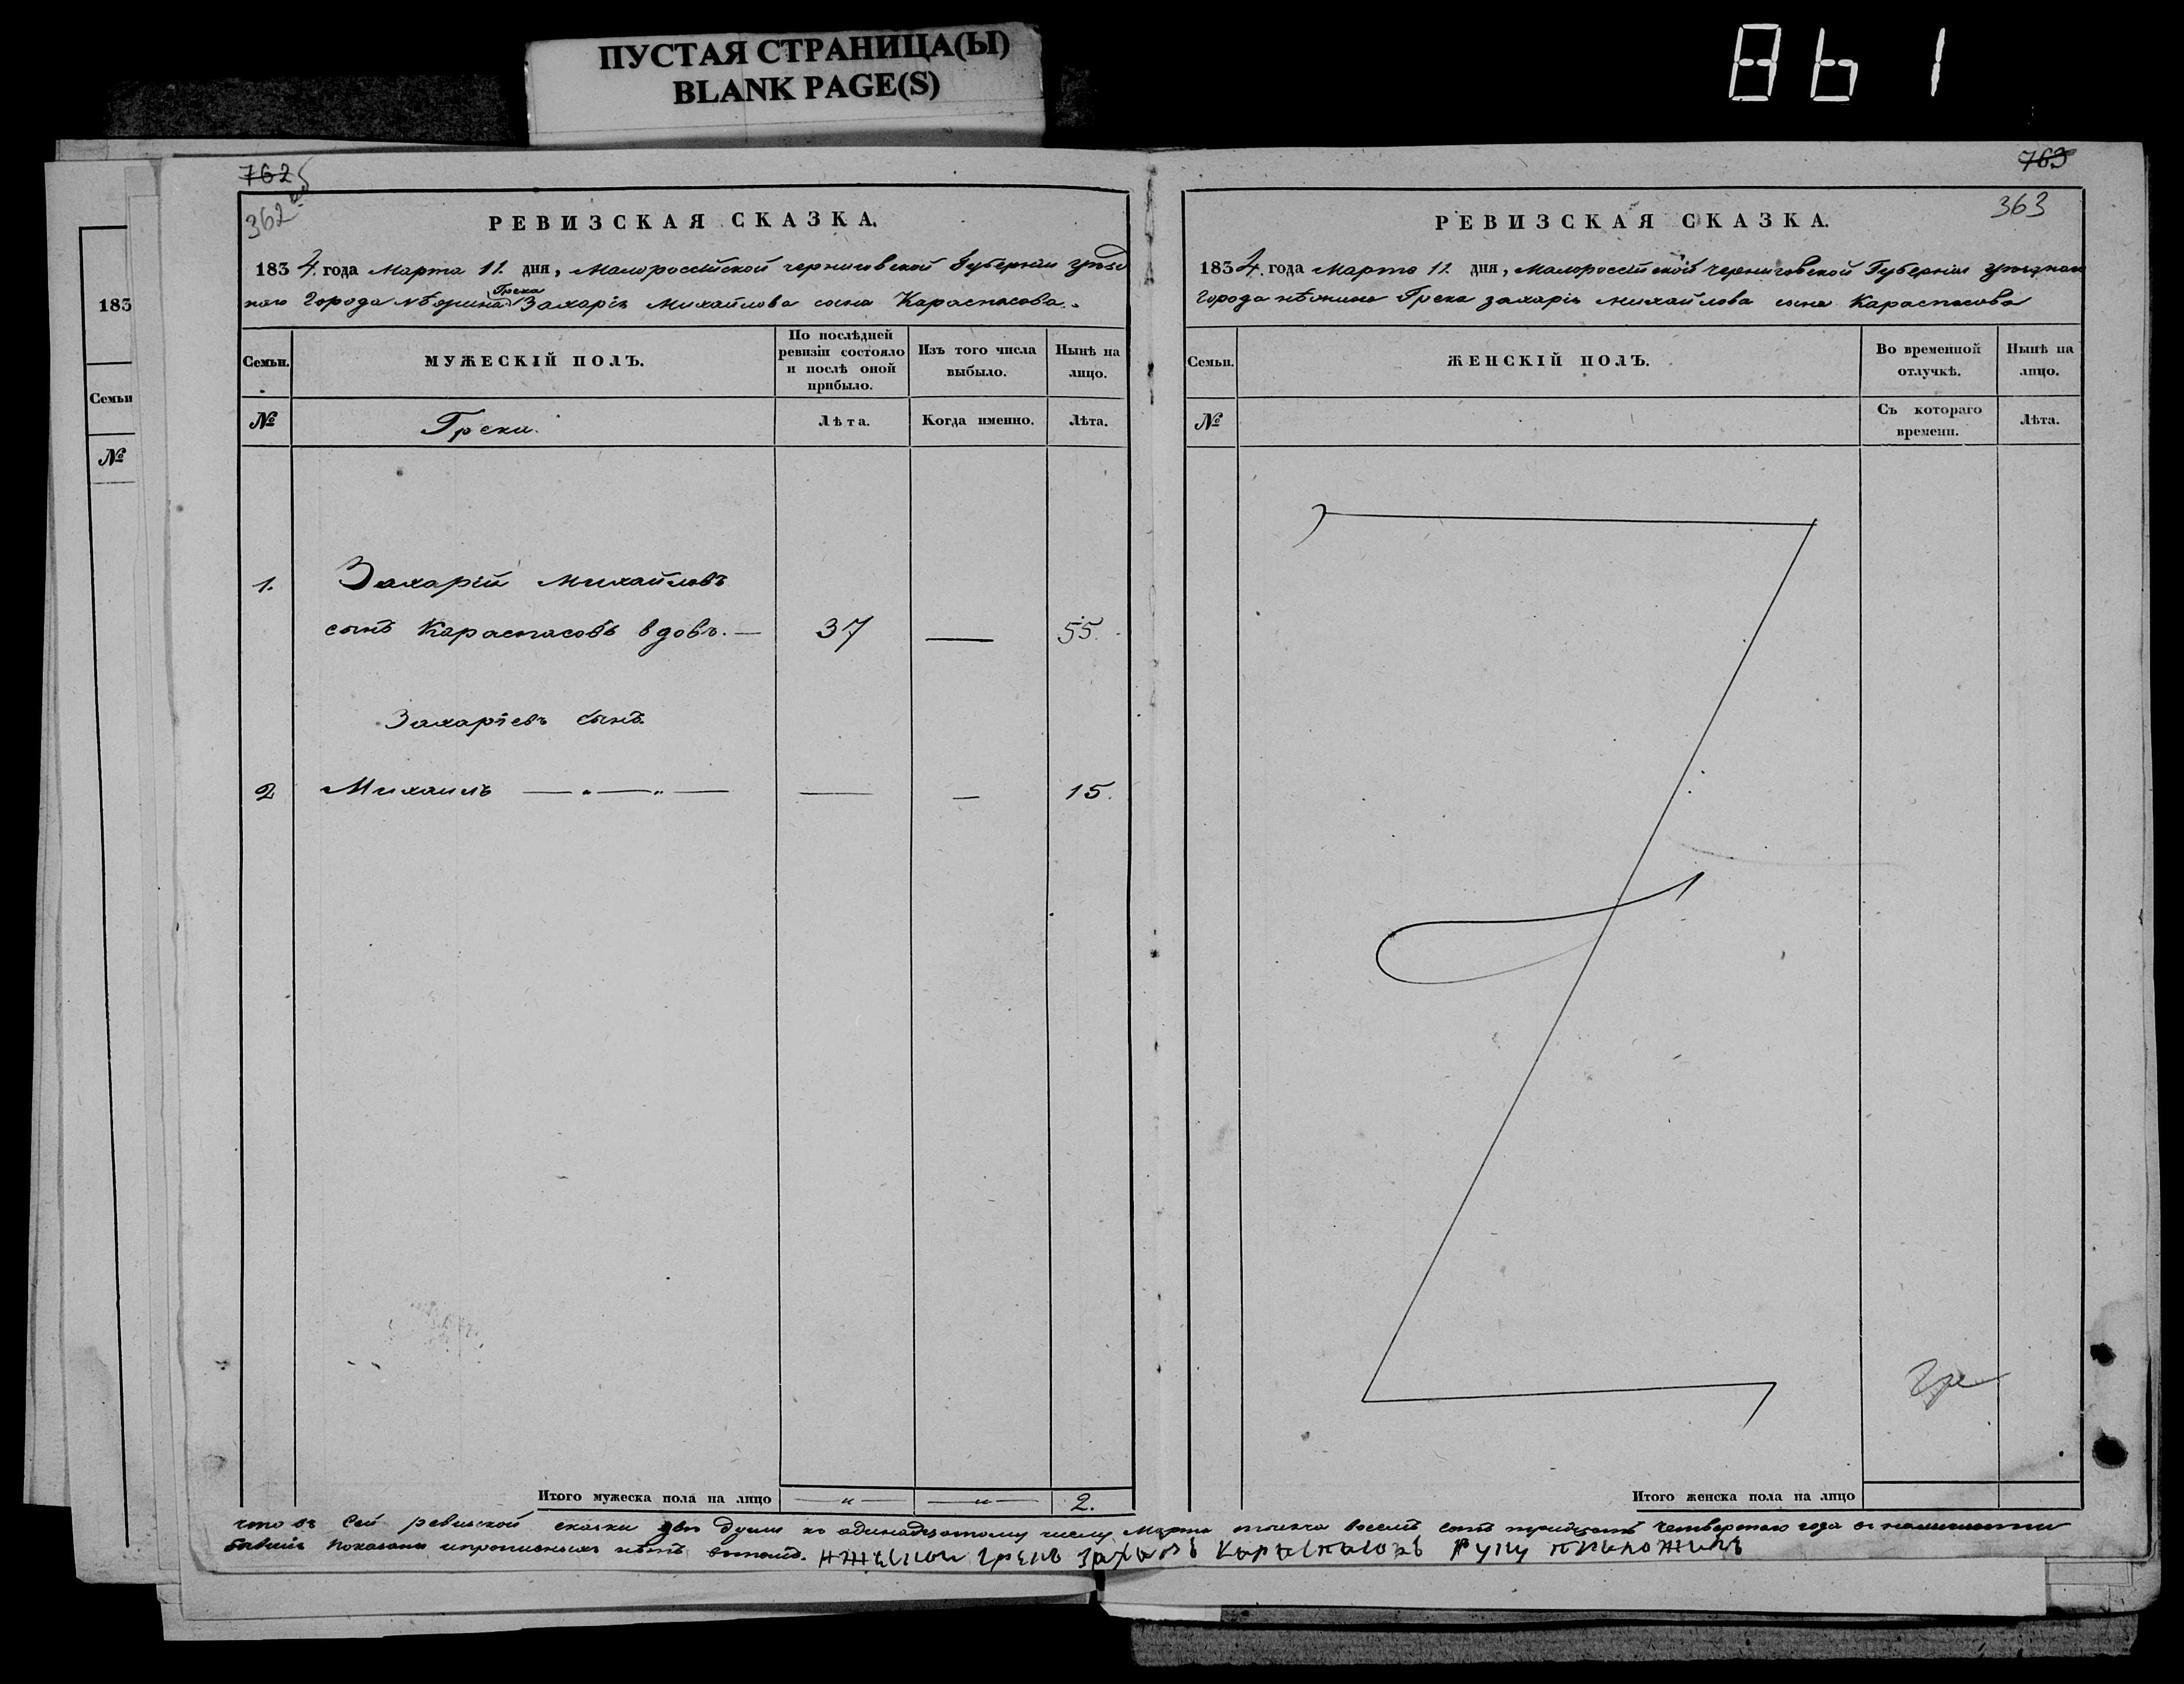 ПУСТАЯ СТРАНИЦА(Ы)
BLANK PAGE(S)
762
362 об
РЕВИЗСКАЯ СКАЗКА.
1834. года Марта 11. дня, Малороссійской черниговской Губерніи уѣзд
наго города Нѣжина Грека Захарія Михайлова сына Караспасова.
Семьи.
МУЖЕСКІЙ ПОЛЪ.
По послѣдней ревизіи состояло и послѣ оной прибыло.
Изъ того числа выбыло.
Нынѣ на лицо.
№
Греки.
Лѣта.
Когда именно.
Лѣта.
1. Захарій Михайловъ
сынъ Караспасовъ вдовъ. — 37 — 55.
Захаріевъ сынъ.
2 Михаилъ — " — " — — — 15.
Итого мужеска пола на лицо — " — — " — 2.
763
363
РЕВИЗСКАЯ СКАЗКА.
1834. года Марта 11. дня, Малороссійской Черниговской Губерніи уѣзднаго
города нѣжина Грека захарія михайлова сына Караспасова
Семьи.
ЖЕНСКІЙ ПОЛЪ.
Во временной отлучкѣ.
Нынѣ на лицо.
№
Съ котораго времени.
Лѣта.
Итого женска пола на лицо
что въ сей ревизской сказки двѣ души къ одинадцатому числу Марта тысяча восемь сотъ тридцать четвертаго года въ наличности
показаны и прописныхъ нѣтъ
183
Семьи
№